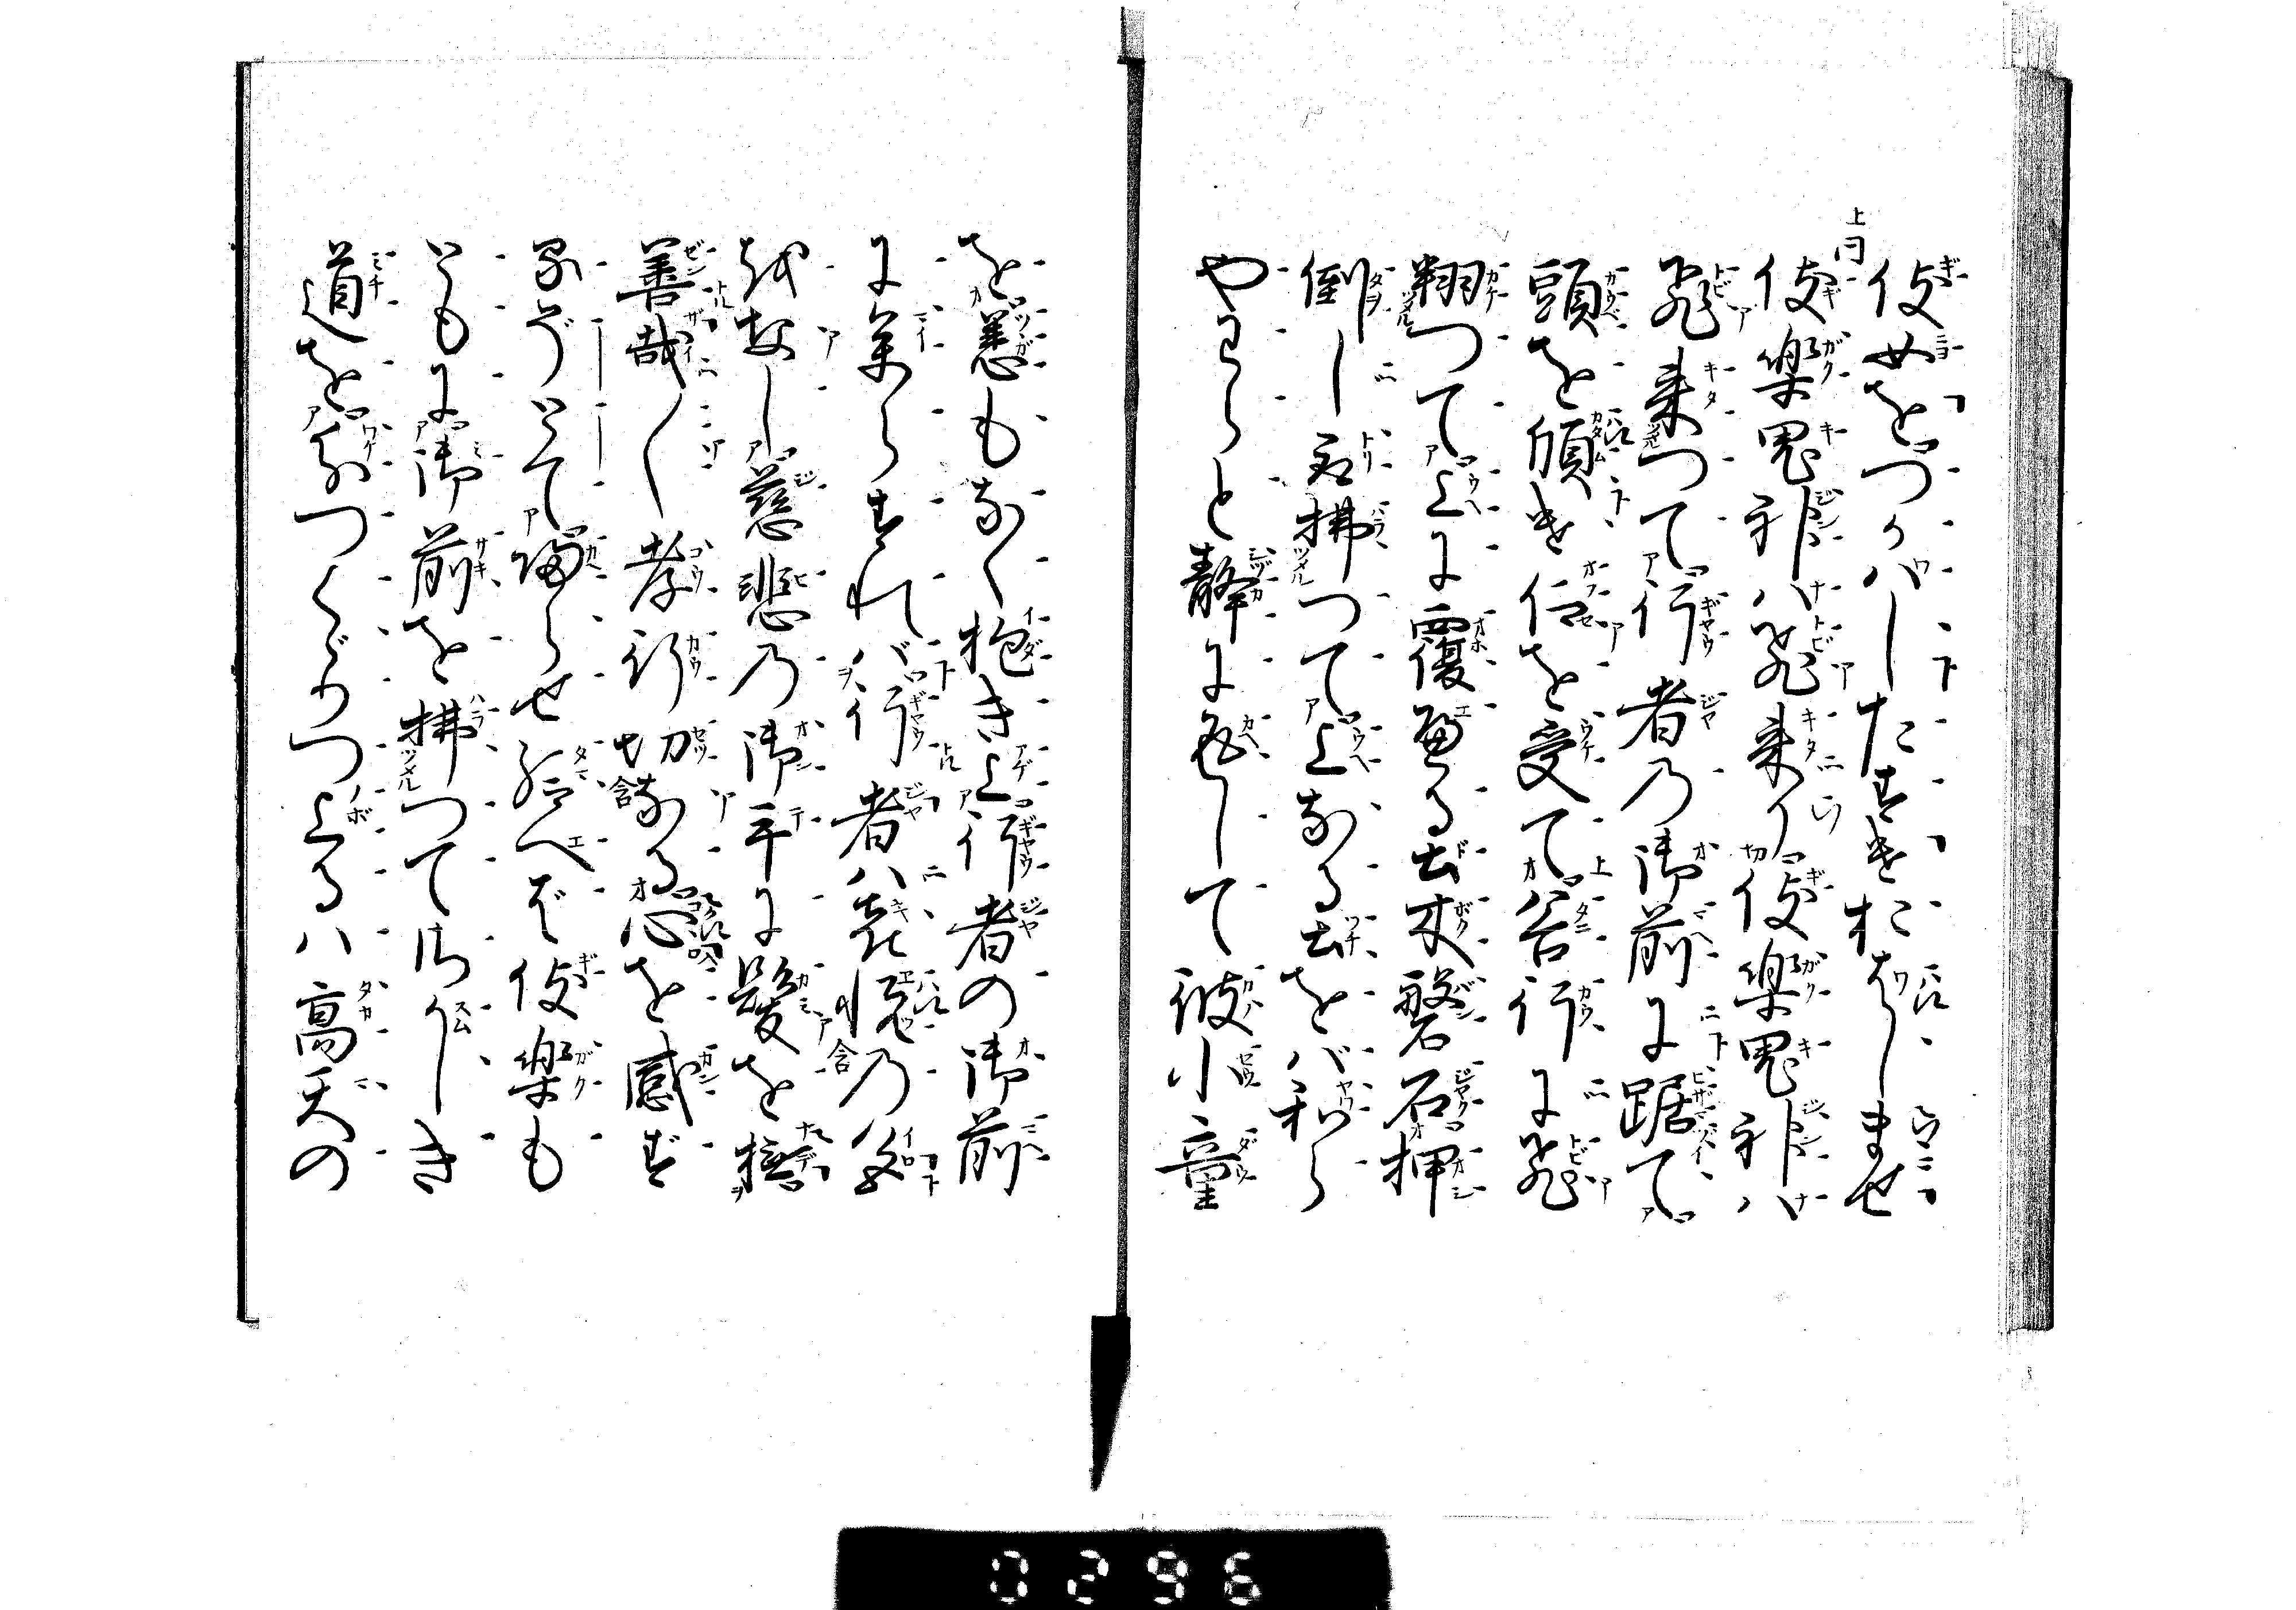 伎女をつかハしたすけおはしませ
伎楽鬼神ハ飛来り伎楽鬼神ハ
飛来つて行者の御前に跪て
頭を傾け仰を受て谷行に飛
翔つて上に覆へる土木磐石押
倒し取拂つて上なる土をバ和ら
やわらと静に返して彼小童
を恙もなく抱き上行者の御前
に参らすれバ行者ハ喜悦の色
をなし慈悲の御手に髪を撫
善哉〱孝行切なる心を感ず
るぞとて帰らせ給へば伎楽も
ともに御前を拂つて
道を分つくゞりつ上るハ高天の
0296